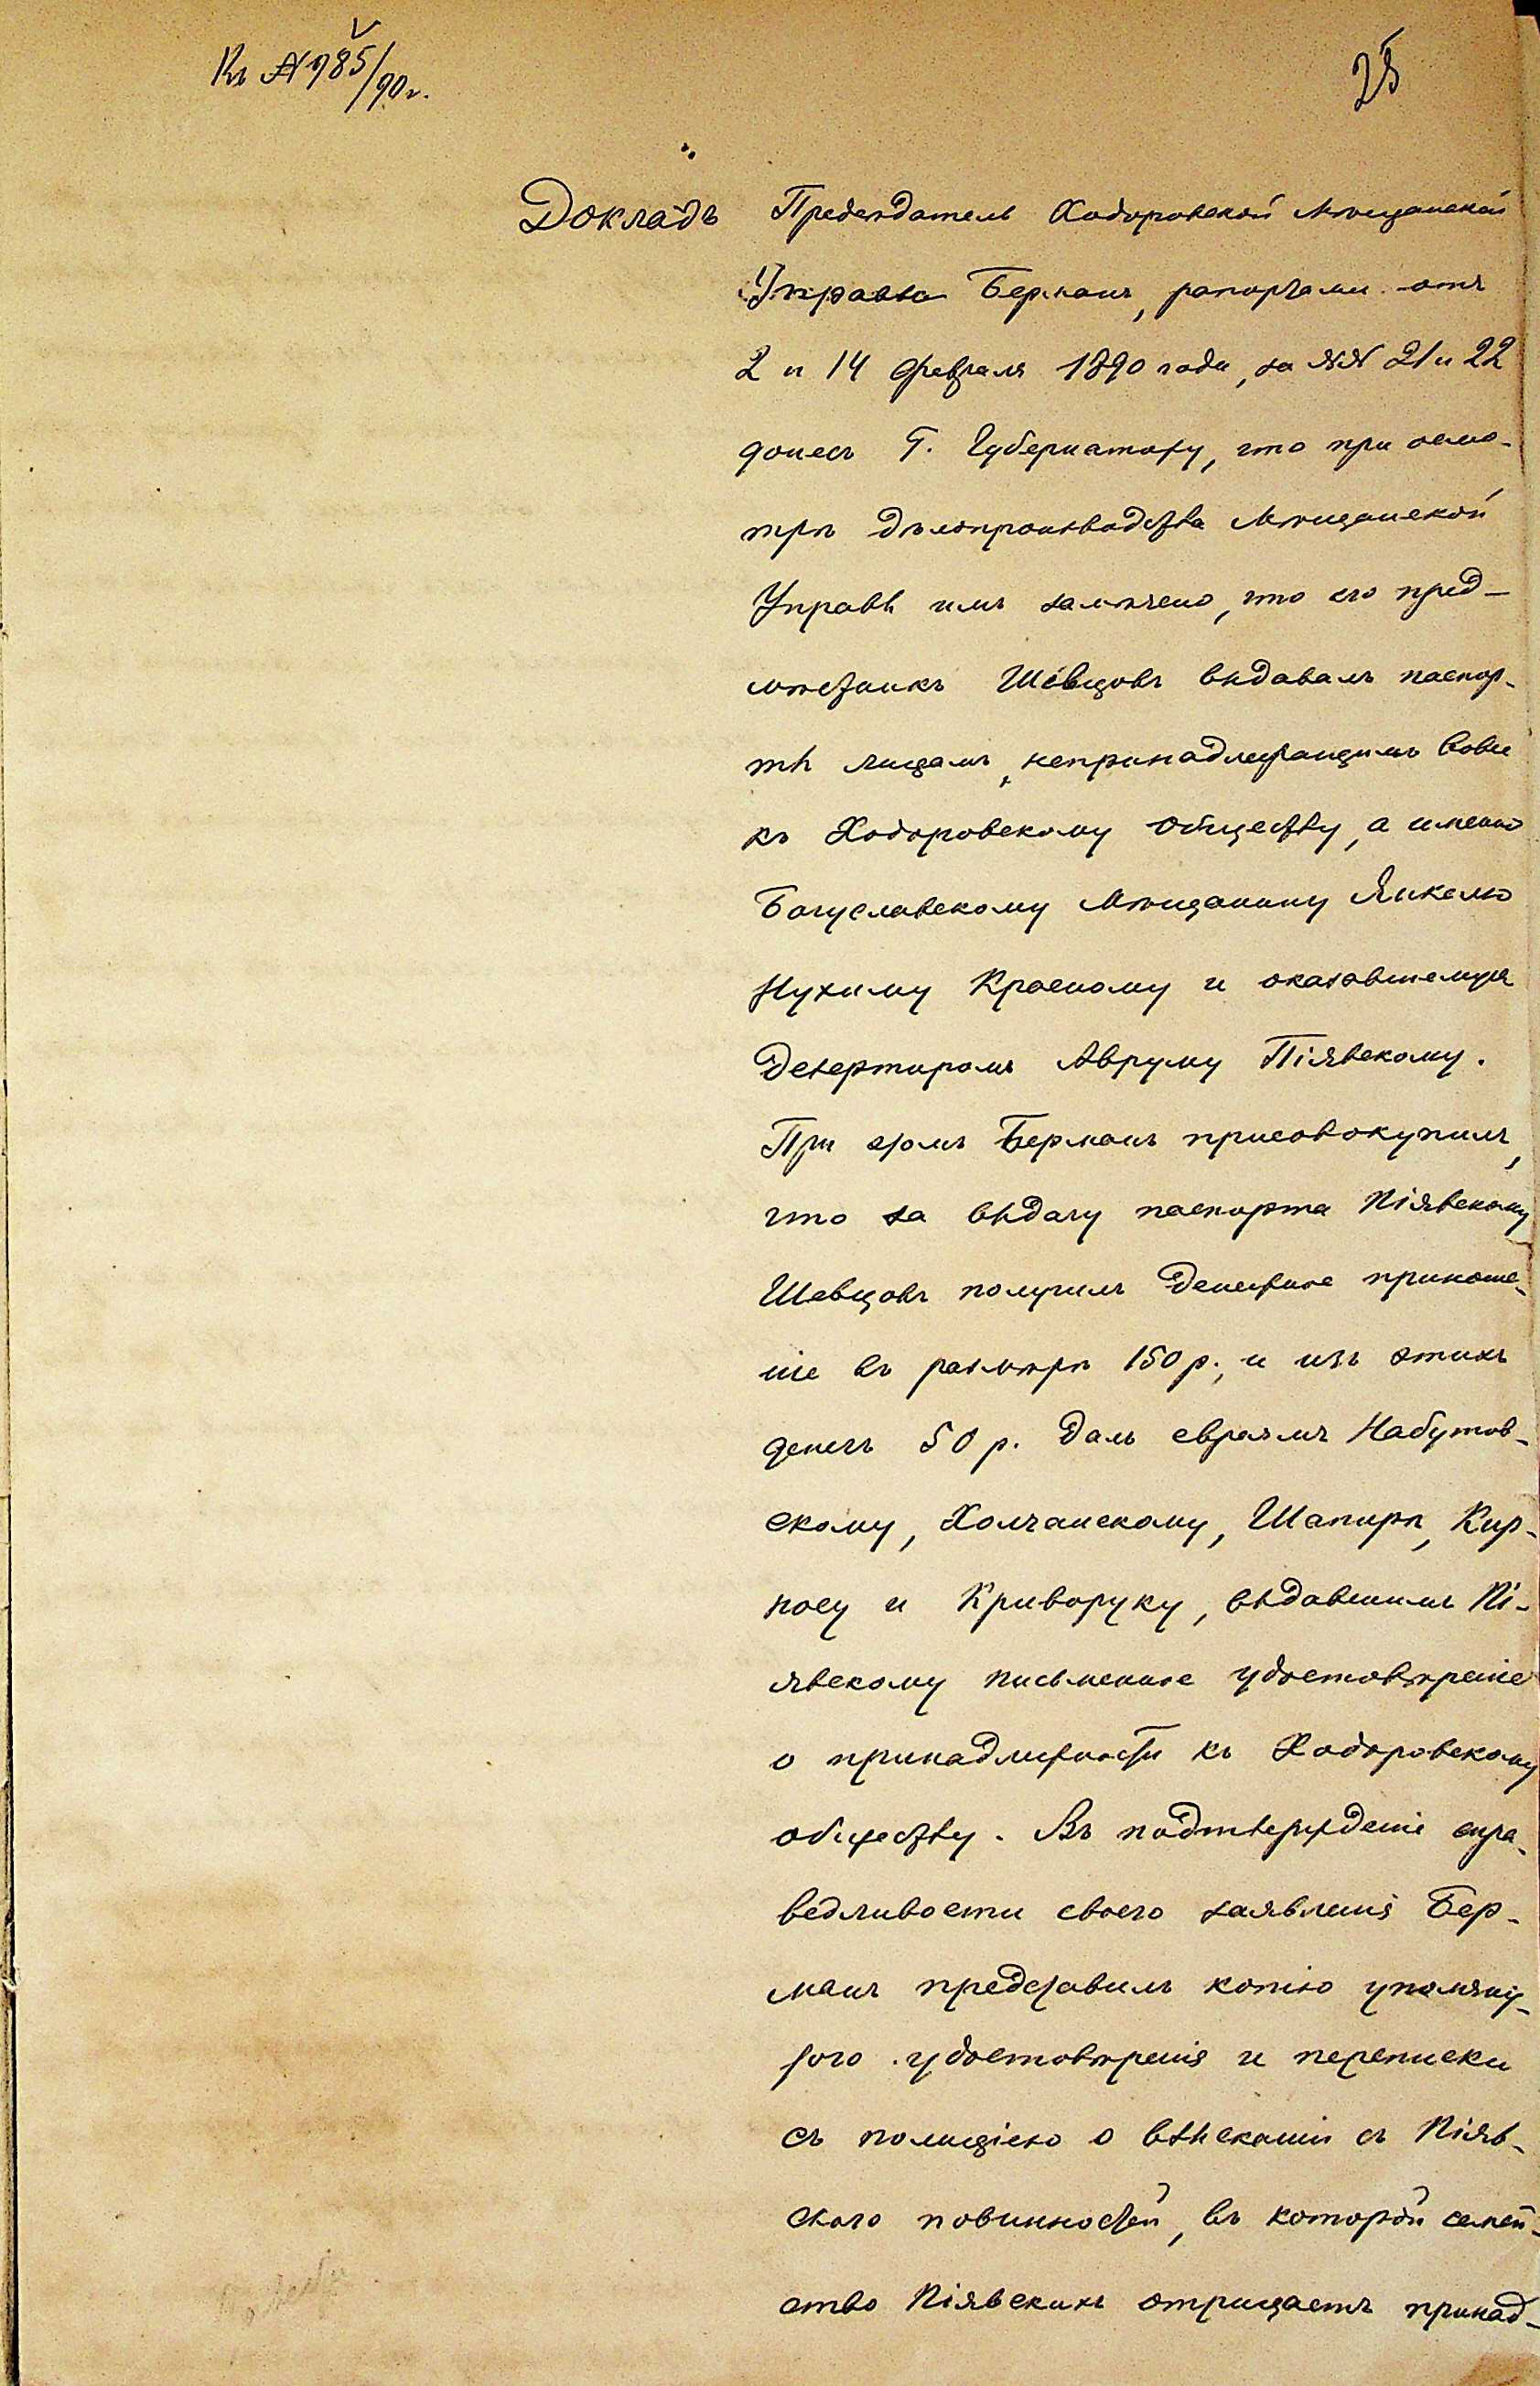 Къ № 985/90 г.
25
Докладъ
Предсѣдатель Ходоровской Мѣщанской
Управы Берманъ, рапортами отъ
2 и 14 февраля 1890 года, за №№ 21 и 22
донесъ Г. Губернатору, что при осмо-
трѣ дѣлопроизводства Мѣщанской
Управы имъ замѣчено, что его пред-
мѣстникъ Шевцовъ выдавалъ паспор-
ты лицамъ, непринадлежащимъ вовсе
къ Ходоровскому обществу, а именно
Богуславскому Мѣщанину Янкелю
Нухиму Красному и оказавшемуся
дезертиромъ Авруму Піявскому.
При этомъ Берманъ присовокупилъ,
что за выдачу паспорта Піявскому
Шевцовъ получилъ денежное приноше-
ніе въ размѣрѣ 150 р., и изъ этихъ
денегъ 50 р. далъ евреямъ Набутов-
скому, Холчанскому, Шапирѣ, Кир-
носу и Криворуку, выдавшимъ Пі-
явскому письменное удостовѣреніе
о принадлежности къ Ходоровскому
обществу. Въ подтвержденіе спра-
ведливости своего заявленія Бер-
манъ представилъ копію упомяну-
того удостовѣренія и переписки
съ полиціею о взысканіи съ Піяв-
скаго повинностей, въ которой семей-
ство Піявскихъ отрицаетъ принад-